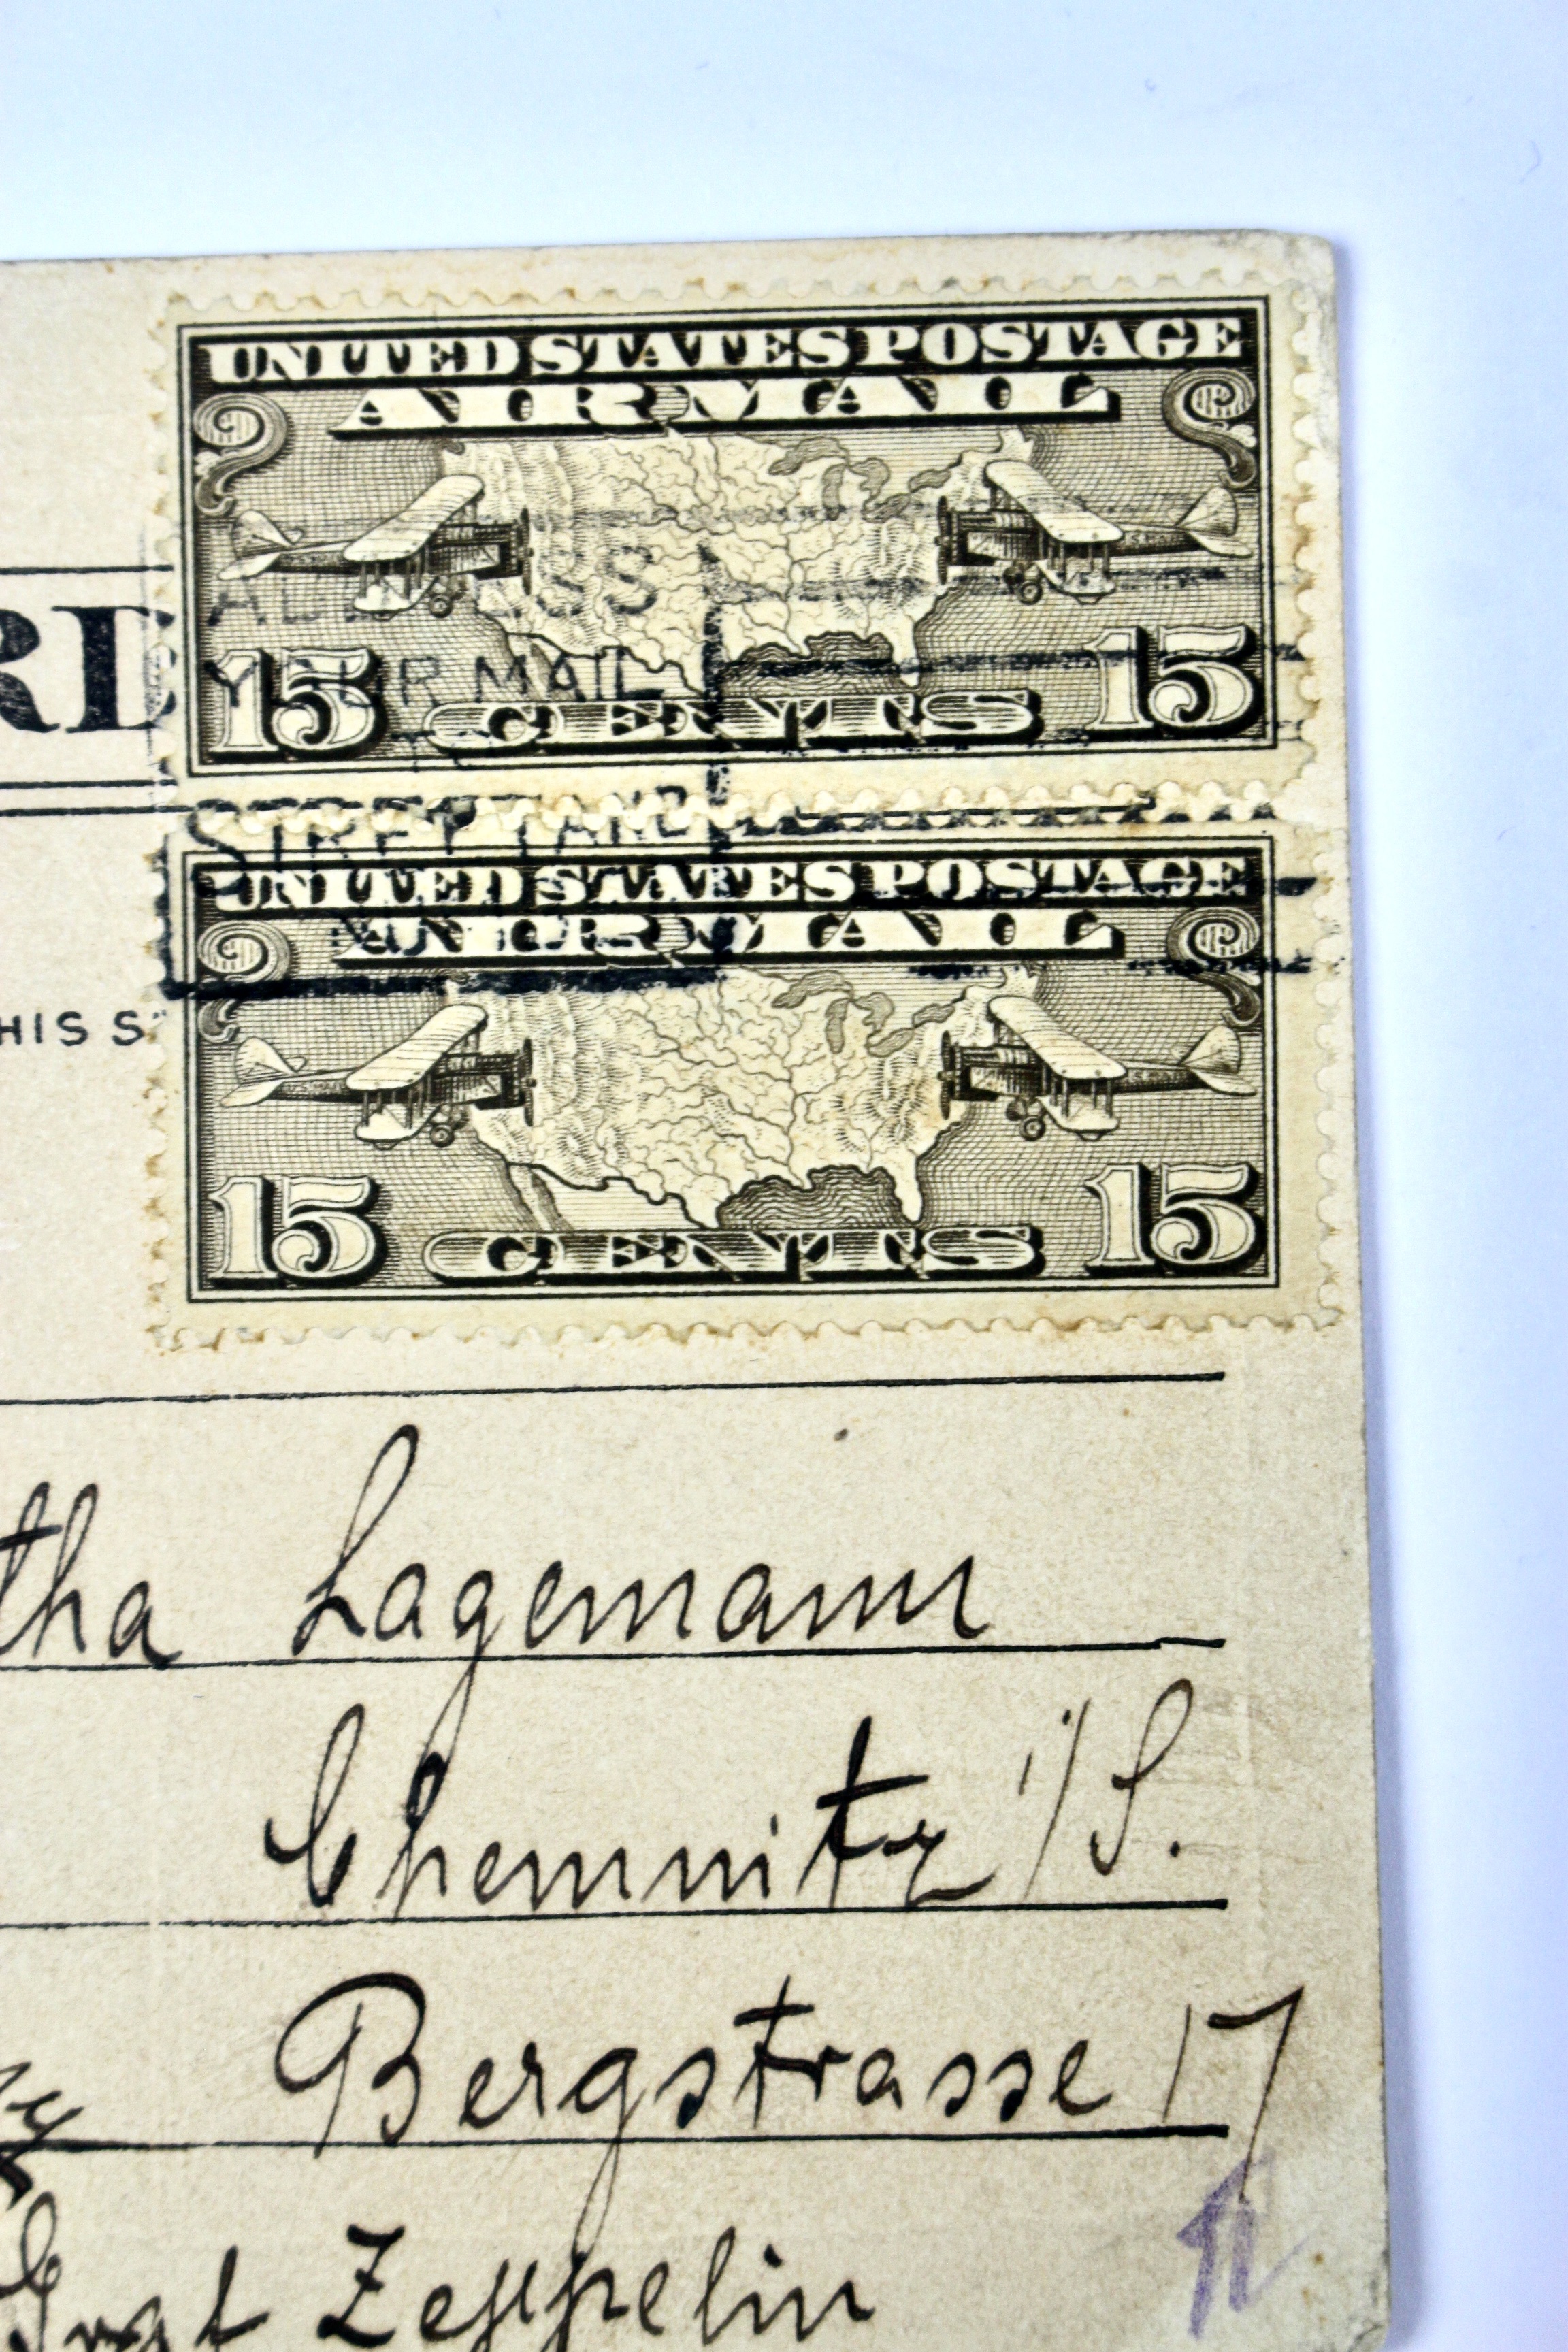 UNITED STATES POSTAGE
AIR MAIL
ADDRESS
YOUR MAIL
TO
15 CENTS 15
STREET AND
UNITED STATES POSTAGE
AIR MAIL
HIS S
15 CENTS 15
tha Lagemann
Chemnitz i/S.
Bergstrasse 17
Zeppelin